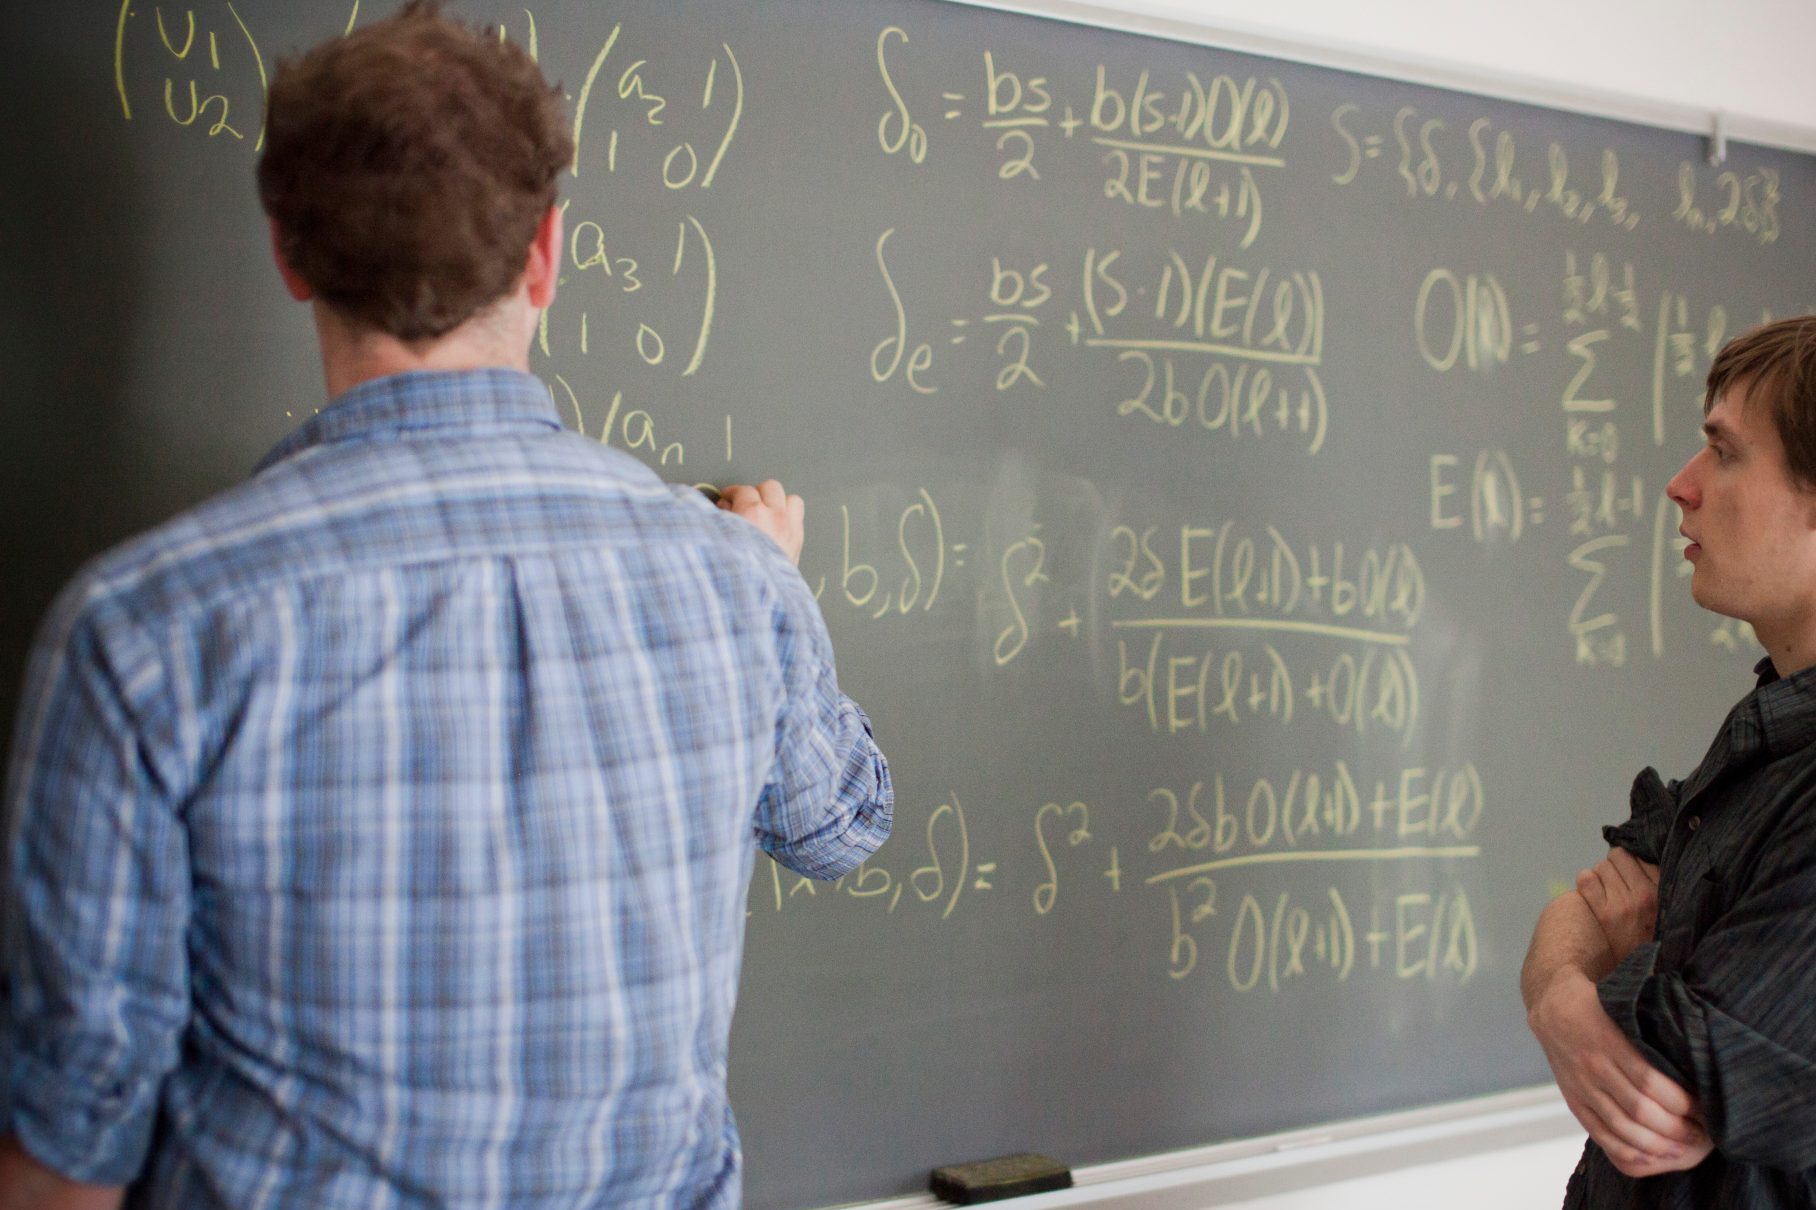 (U1
U2)
(a2 1
1 0)
a3 1
1 0)
(an 1
δo = bs/2 + b(s-1)O(l)/2E(l+1)
S = {δ, {l1, l2, l3, ln, 2δ}}
δe = bs/2 + (s-1)(E(l))/2bO(l++)
O(l) = Σ K=0
E(l) = ½l-1 Σ K=0
, b, δ) = δ² + 2δE(l+1)+bO(l)/b(E(l+1)+O(l))
b, δ) = δ² + 2δbO(l+1)+E(l)/b²O(l+1)+E(l)